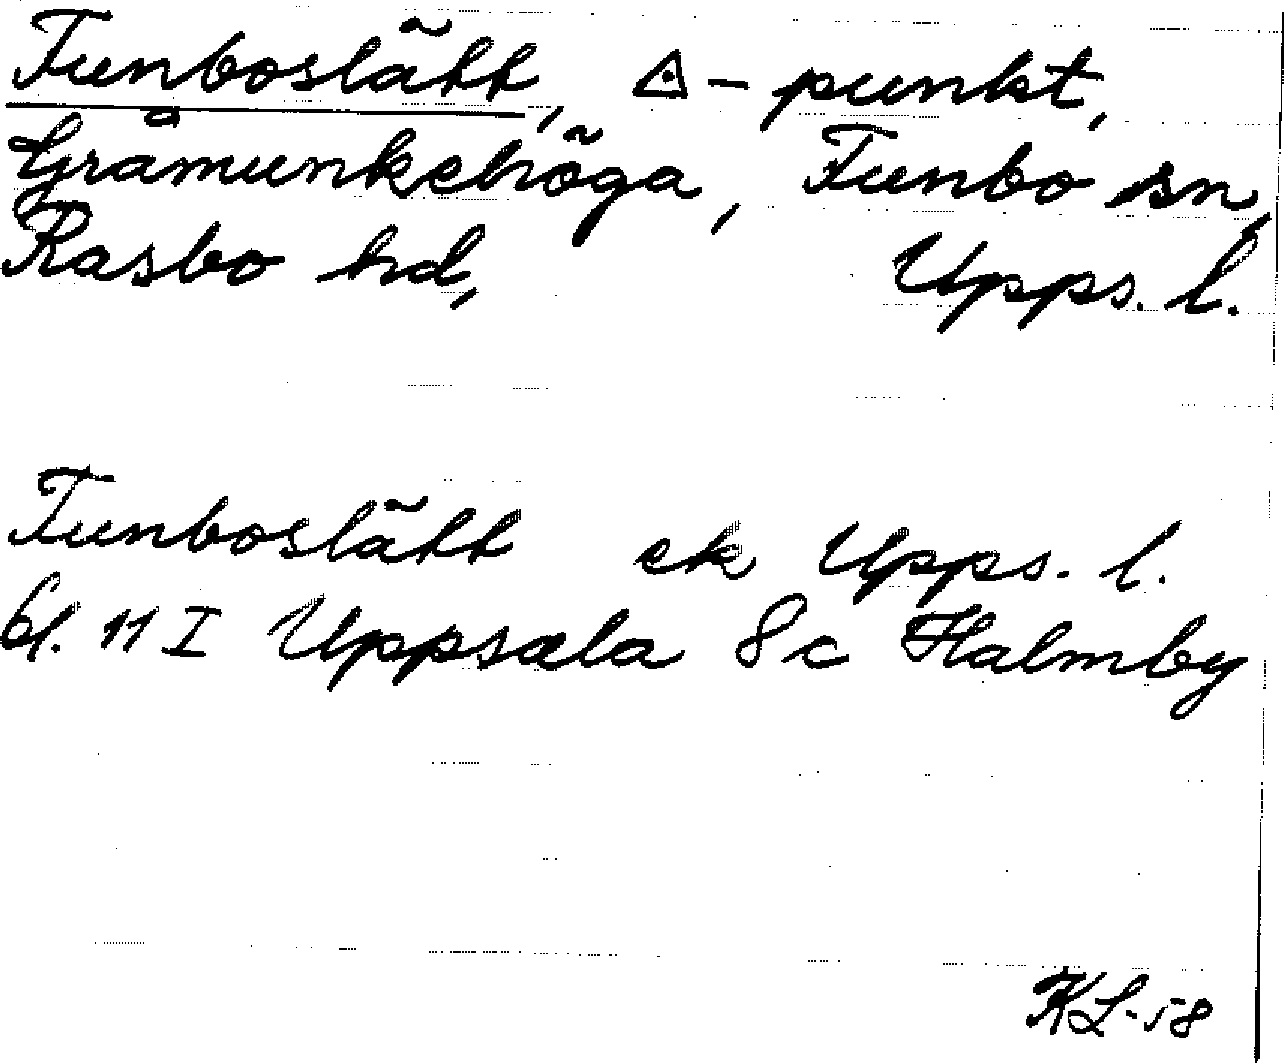 Funboslätt, △-punkt,
Gråmunkehöga, Funbo sn,
Rasbo hd, Upps. l.
Funboslätt ek Upps. l.
bl. 11 I Uppsala 8c Halmby
KL-58